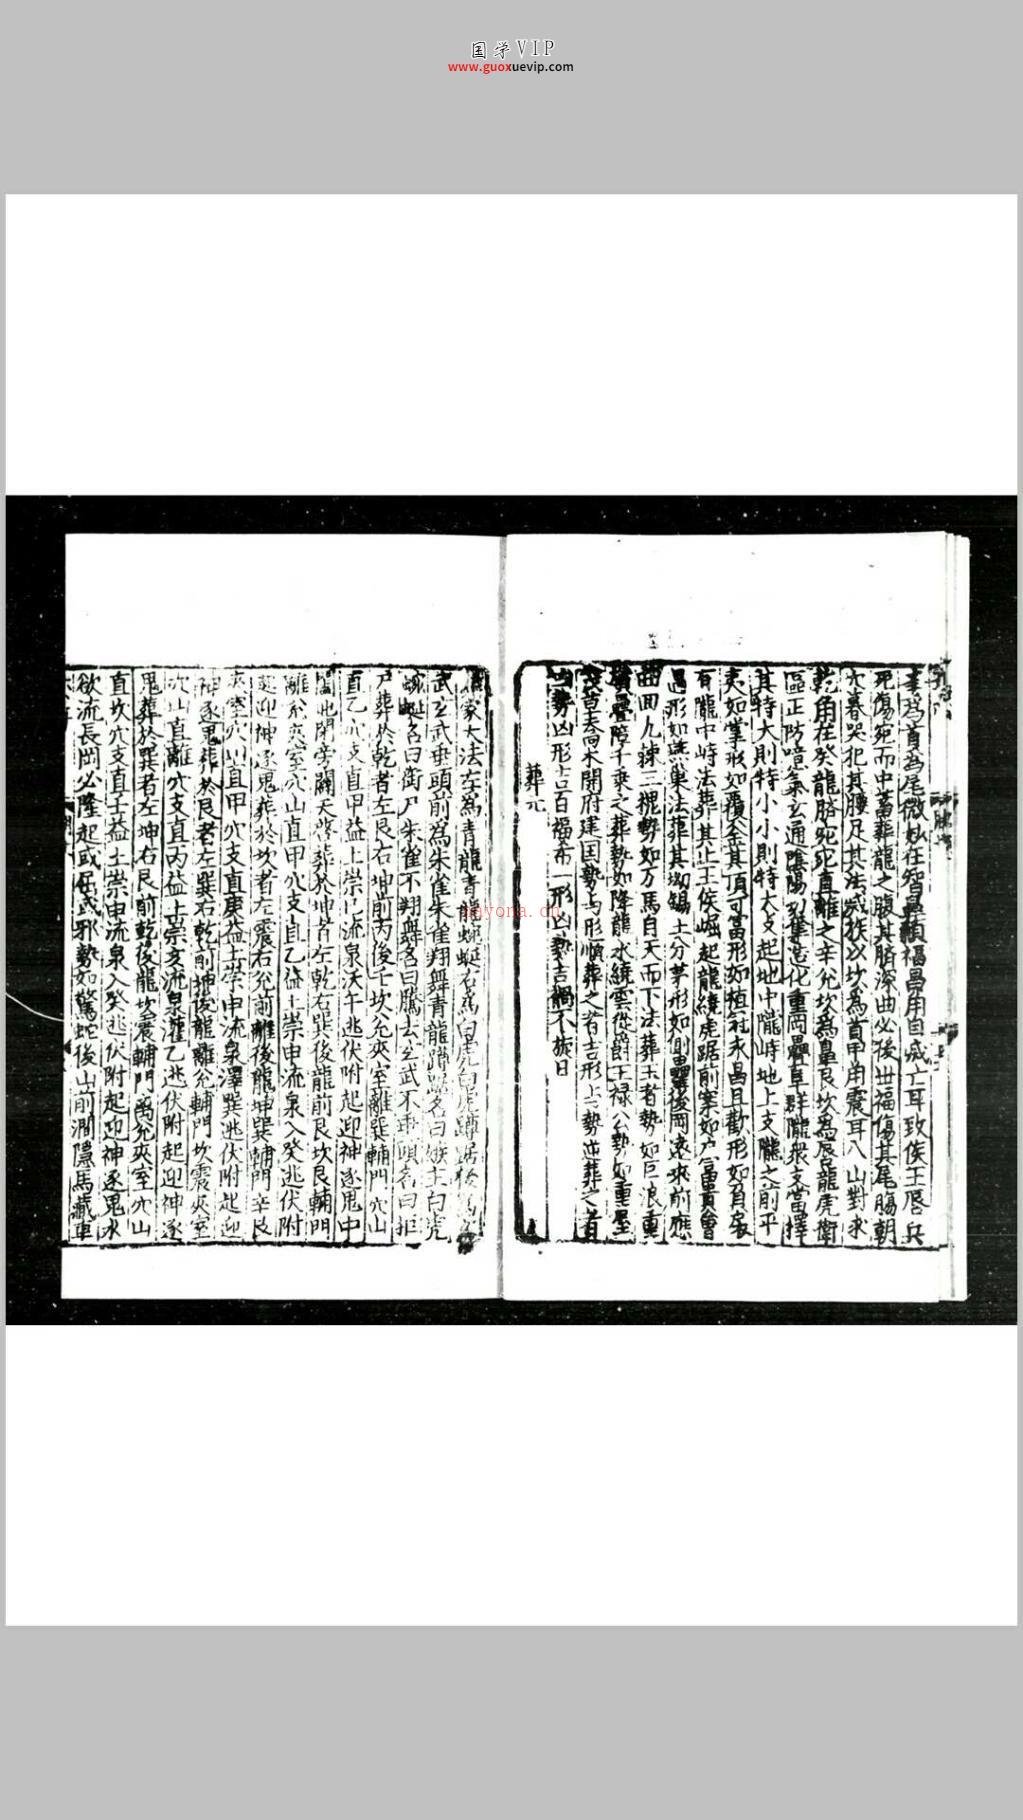 国学VIP
www.guoxuevip.com
為首為尾微妙在智鼻顙福昌角目成亡耳致侯王唇兵
死傷宛而中蓄葬龍之腹其臍深曲必後世福傷其尾腸朝
穴暮哭犯其腰足其法滅族以坎為首甲角震耳八山對求
乾角在癸龍臍宛宛直離之辛兌坎為鼻艮坎為唇龍虎衛
區正防噫氣玄通陰陽造化重岡疊阜群隴眾支當擇
其特大則特小小則特大支起地中隴峙地上支隴之前平
夷如掌形如覆釜其頂可富形如植冠永昌且歡形如負扆
有隴中峙法葬其止王侯崛起龍繞虎踞前案如戶富貴會
遇形如燕巢法葬其坳錫土分茅形如側罍後岡遠來前應
曲回九棘三槐勢如万馬自天而下法葬王者勢如巨浪重
嶺疊障千乘之葬勢如降龍水繞雲從爵王禄公勢如重屋
茂草喬木開府建国勢与形順葬之者吉形与勢逆葬之者
凶勢凶形吉百福希一形凶勢吉禍不旋日
葬元
家大法左為青龍青龍蜿蜒右為白虎白虎蹲踞後為玄
武玄武垂頭前為朱雀朱雀翔舞青龍蹲踞名曰嫉主白虎
蜿蜒名曰銜尸朱雀不翔舞名曰騰去玄武不垂頭名曰拒
尸葬於乾者左艮右坤前丙後壬坎兌夾室離巽輔門穴山
直乙穴支直甲益土崇流泉沃午逃伏附起迎神逐鬼中
葬於坤者左乾右巽後龍前艮坎艮輔門
離兌夾室穴山直甲穴支直乙益土崇申流泉入癸逃伏附
起迎神逐鬼葬於坎者左震右兌前離後龍坤巽輔門辛艮
夾室穴山直甲穴支直庚益土崇申流泉澤巽逃伏附起迎
神逐鬼葬於艮者左巽右乾前坤後龍離兌輔門坎震夾室
穴山直離穴支直丙益土崇亥流泉灌乙逃伏附起迎神逐
鬼葬於巽者左坤右艮前乾後龍坎震輔門离兌夾室穴山
直坎穴支直壬益土崇申流泉入癸逃伏附起迎神逐鬼水
欲流長岡必隆起或屈或邪勢如驚蛇後山前澗隱馬藏車
nayona.cn